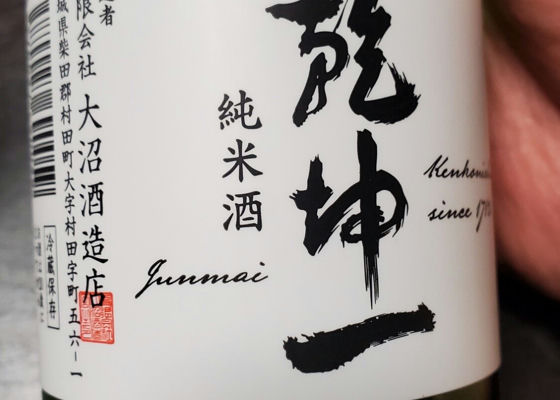 乾坤一
Kenkonichi
since 17
純米酒
Junmai
造者
限会社 大沼酒造店
城県柴田郡村田町大字村田字町五六ー一
冷蔵保存